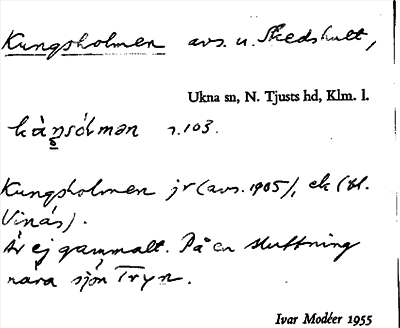 Kungsholmen avs. u. Skedshult,
Ukna sn, N. Tjusts hd, Klm. l.
kàŋsólmən s. 103.
Kungsholmen jr (avs. 1905), ek (bl.
Vinäs).
Är ej gammalt. På en sluttning
nära sjön Tryn.
Ivar Modéer 1955